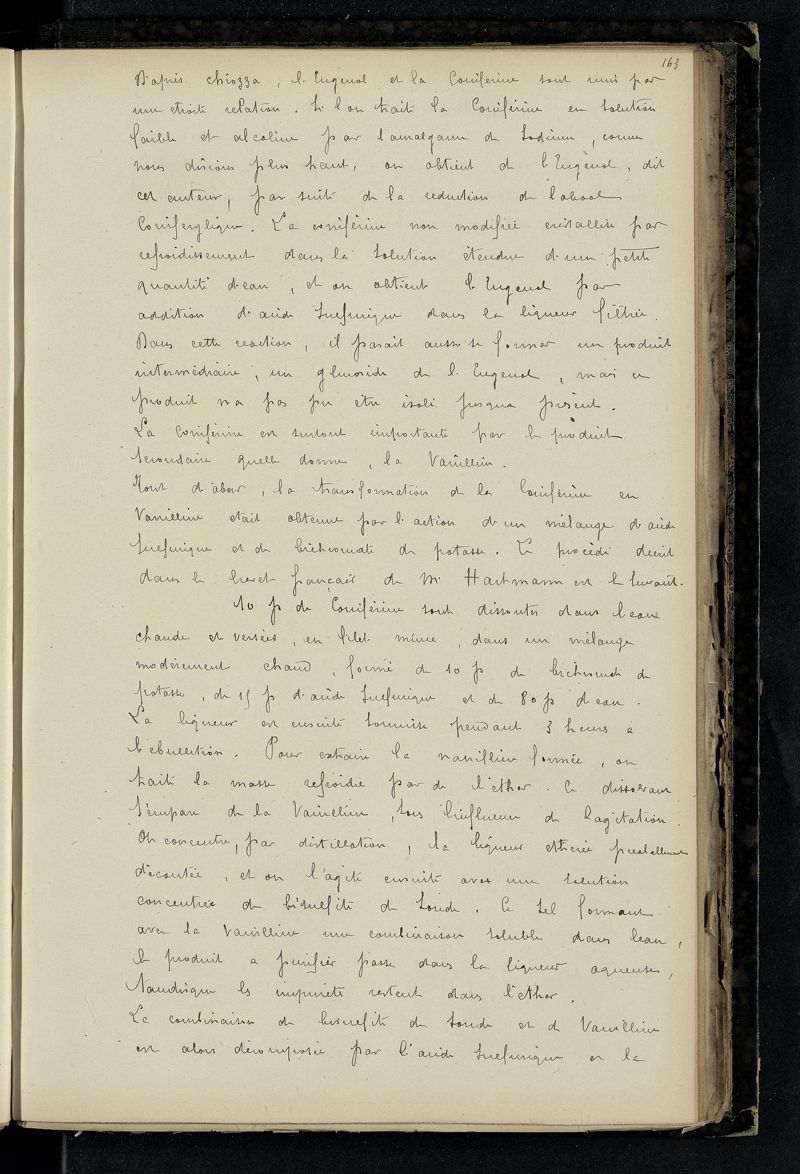 163
D'après Chiozza, l'Eugenol et la Coniferine sont unis par
une etroite relation. Si l'on trait la Coniférine en solution
faible et alcoline par l'amalgame de Sodium, comme
nous disions plus haut, on obtient de l'Eugénol, dit
cet auteur, par suite de la reduction de l'alcool
Coniferylique. La coniférine non modifiée cristallise par
refroidissement dans la solution étendue d'une petite
quantité d'eau, et on obtient l'Eugenol par
addition d'acide sulfurique dans la liqueur filtrée.
Dans cette reaction, il parait aussi se former un produit
intermédiaire, un glucoside de l'Eugenol, mais ce
produit n'a pas pu etre isolé jusqua présent.
La Coniférine est surtout importante par le produit
secondaire quelle donne, la Vanilline.
Tout d'abord, la transformation de la Coniférine en
Vanilline etait obtenue par l'action d'un mélange d'acide
sulfurique et de bichromate de potasse. Le procédé decrit
dans le brevet français de Mr Hartmann est le suivant.
10 p de Coniférine sont dissoutes dans l'eau
chaude et versées, en filet mince, dans un mélange
modérement chaud, formé de 10 p de bichromate de
potasse, de 15 p d'acide sulfurique et de 80 p d'eau.
La liqueur est ensuite soumise pendant 3 heures a
l'ebullition. Pour extraire la vanilline formée, on
traite la masse refroidie par de l'éther. Ce dissolvant
s'empare de la Vanilline, sous l'influence de l'agitation.
On concentre, par distillation, la liqueur etherée prealablement
décantée, et on l'agite ensuite avec une solution
concentrée de bisulfite de soude. Ce sel formant
avec la Vanilline une combinaison soluble dans l'eau,
le produit a purifier passe dans la liqueur aqueuse,
tandisque les impuretés restent dans l'éther.
La combinaison de bisulfite de soude et de Vanilline
est alors décomposée par l'acide sulfurique et la